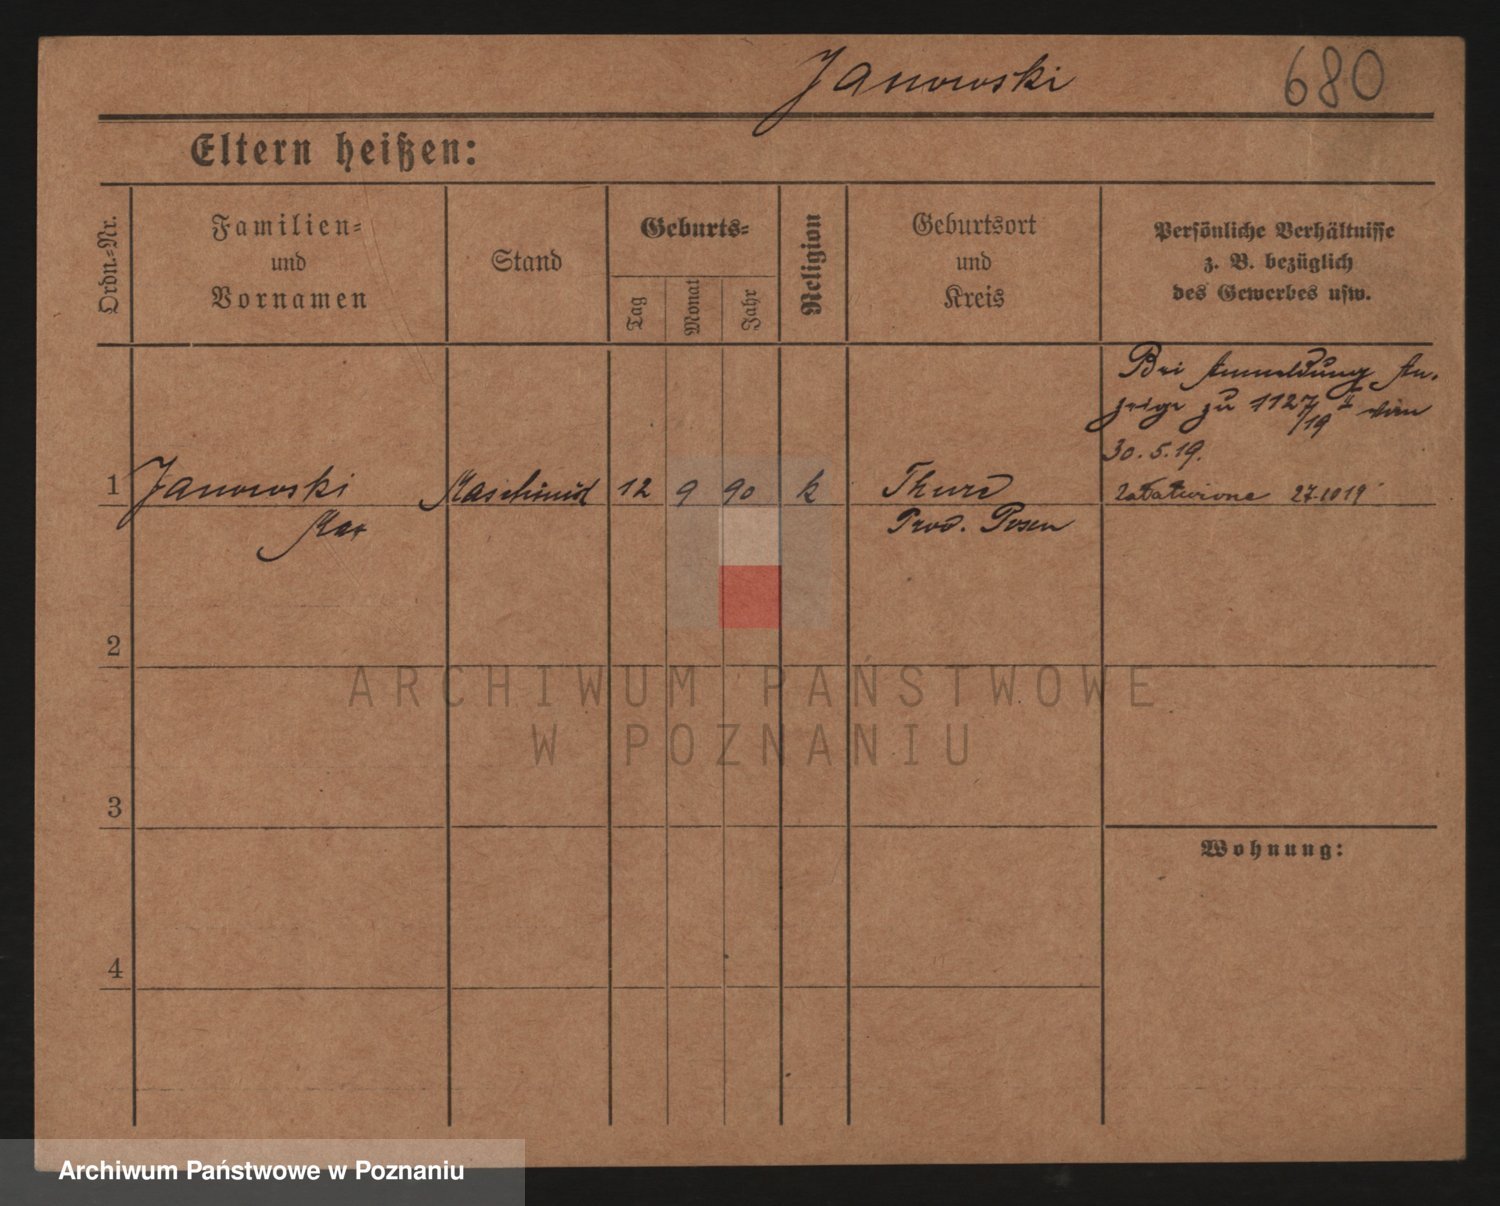 Janowski 680
Eltern heißen:
Ordn.-Nr.
Familien-
und
Vornamen
Stand
Geburts-
Tag
Monat
Jahr
Religion
Geburtsort
und
Kreis
Persönliche Verhältnisse
z. B. bezüglich
des Gewerbes usw.
Bei Anmeldung An-
zeige zu 1127/19 vom
30.5.19.
1 Janowski Maschinist 12 9 90 k Załatwione 27.10 19
Max Prov. Posen
2
ARCHIWUM PAŃSTWOWE
W POZNANIU
3
Wohnung:
4
Archiwum Państwowe w Poznaniu